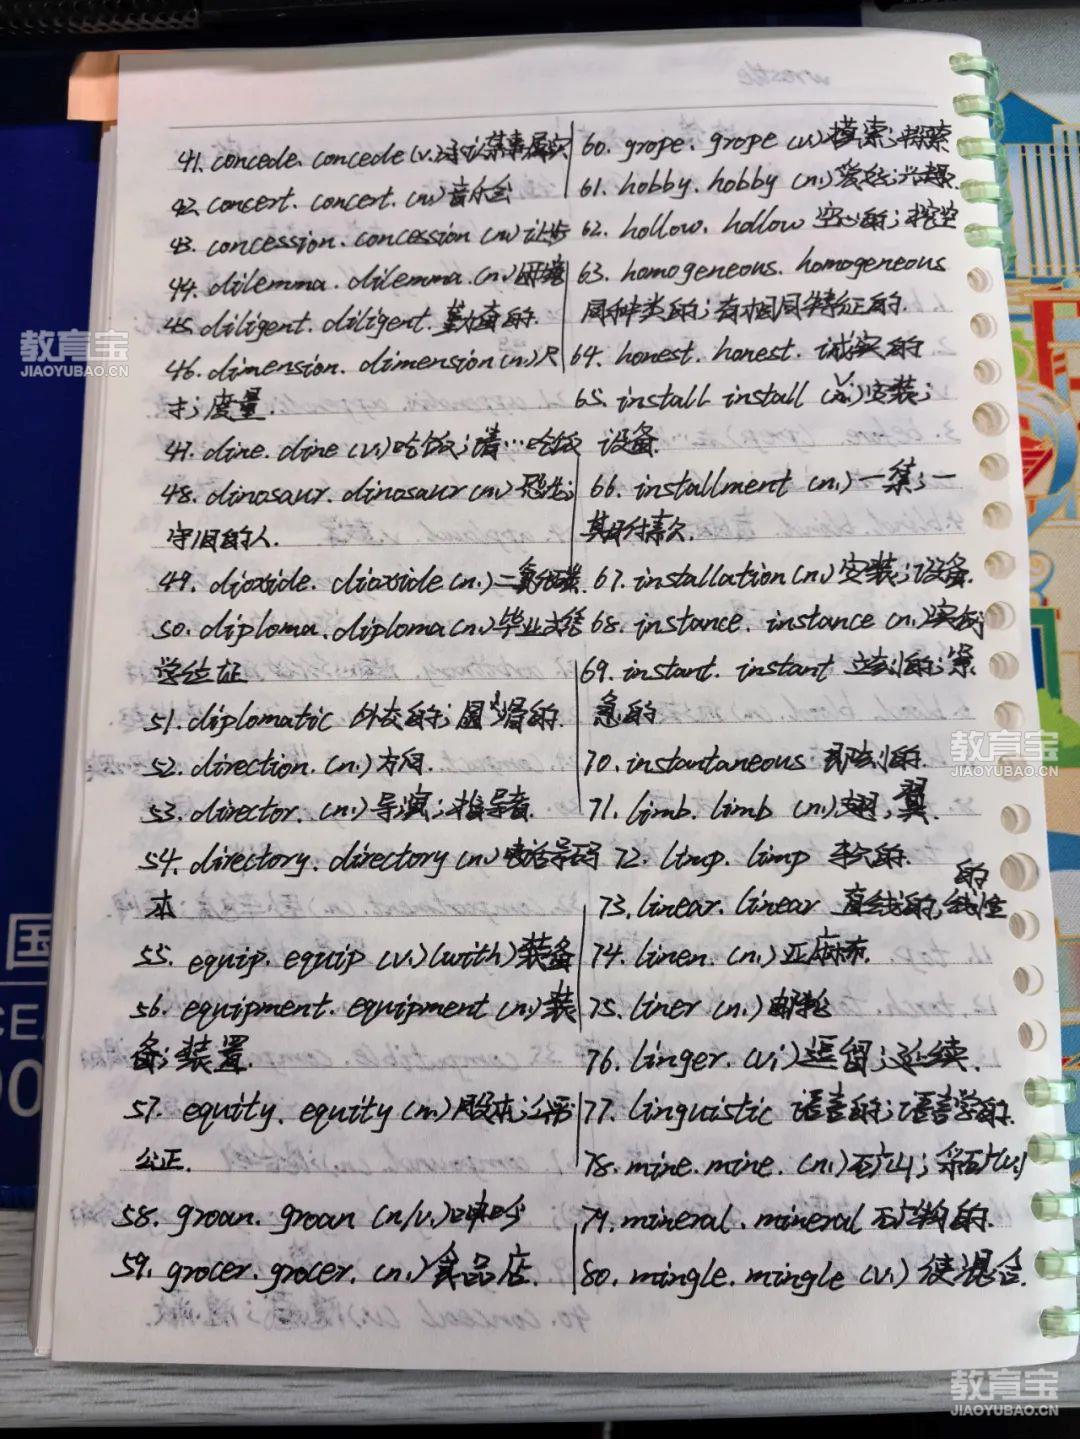 41. concede. concede (v.)承认某事属实
42. concert. concert. (n.)音乐会
43. concession. concession (n.)让步
44. dilemma. dilemma. (n.)困境
45. diligent. diligent. 勤奋的.
46. dimension. dimension (n.)尺
寸; 度量.
47. dine. dine (v.)吃饭; 请…吃饭
48. dinosaur. dinosaur (n.)恐龙;
守旧的人.
49. dioxide. dioxide (n.)二氧化碳
50. diploma. diploma (n.)毕业文凭
学位证
51. diplomatic 外交的; 圆滑的.
52. direction. (n.)方向.
53. director. (n.)导演; 指导者.
54. directory. directory (n.)电话号码
本
55. equip. equip (v.)(with)装备
56. equipment. equipment (n.)装
备; 装置.
57. equity. equity (n.)股本; 公平
公正.
58. groan. groan (n/v.)呻吟
59. grocer. grocer. (n.)食品店.
60. grope. grope (v.)摸索; 探索
61. hobby. hobby (n.)爱好; 兴趣.
62. hollow. hollow 空心的; 挖空
63. homogeneous. homogeneous
同种类的; 有相同特征的.
64. honest. honest. 诚实的
65. install install (v.)安装;
设备.
66. installment (n.) 一集; 一
期付款.
67. installation (n.)安装; 设备.
68. instance. instance (n.)实例
69. instant. instant 立刻的; 紧
急的
70. instantaneous 即刻的.
71. limb. limb (n.)翅; 翼.
72. limp. limp 柔软的.
73. linear. linear 直线的, 线性
的
74. linen. (n.)亚麻布.
75. liner (n.)邮轮
76. linger. (vi)逗留; 延续.
77. linguistic 语言的; 语言学的.
78. mine. mine. (n.)矿山; 采矿(v.)
79. mineral. mineral 矿物的.
80. mingle. mingle (v.) 使混合.
国
教育宝
JIAOYUBAO.CN
教育宝
JIAOYUBAO.CN
教育宝
JIAOYUBAO.CN